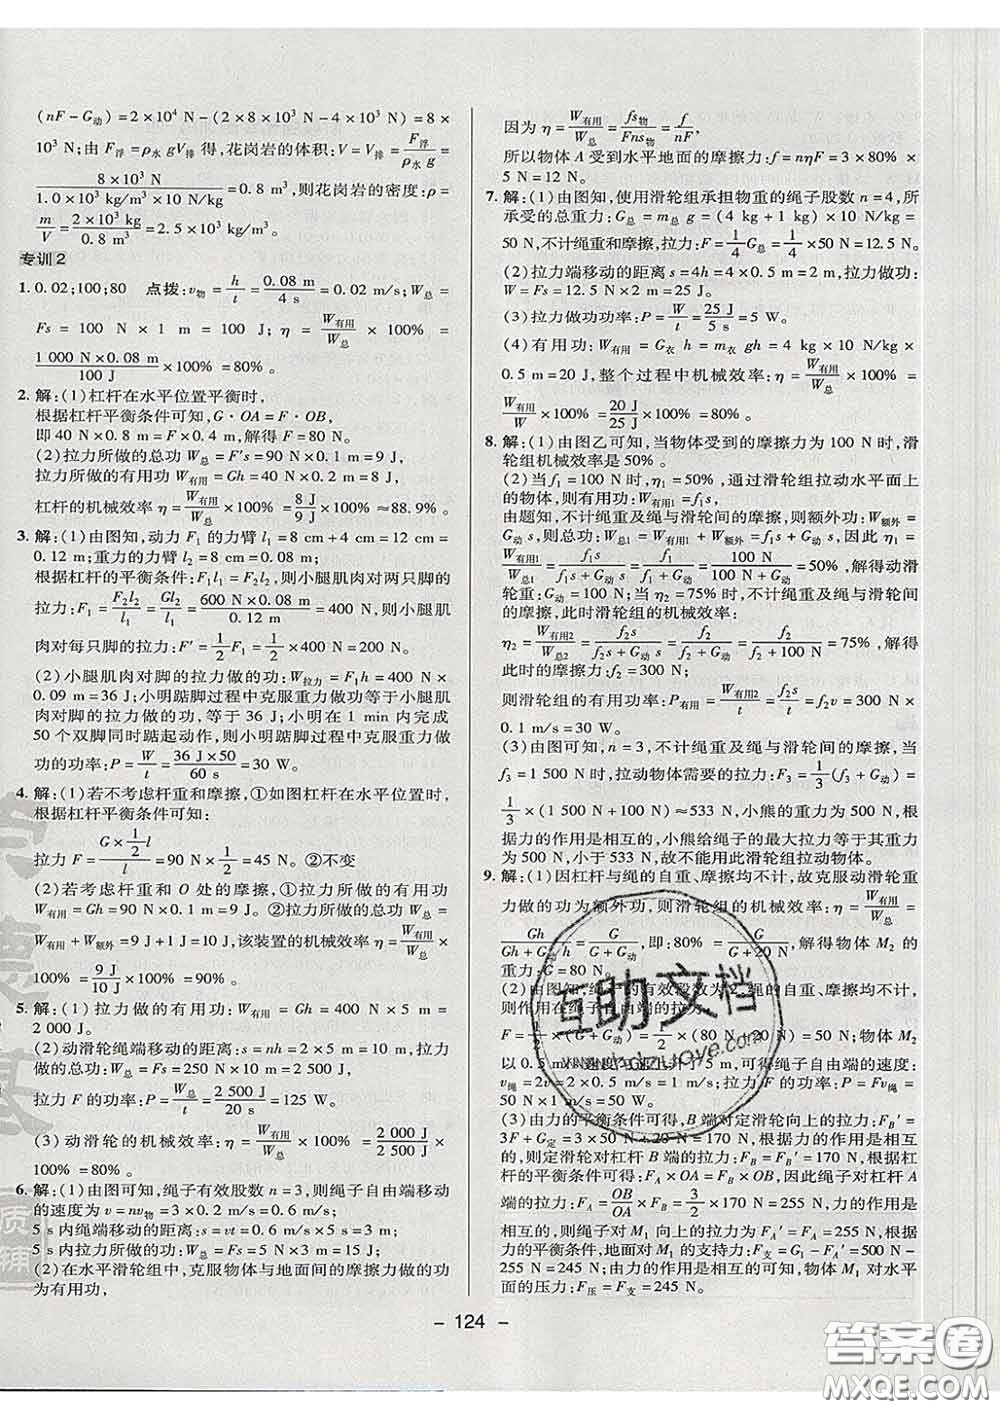 (nF-G动)=2×10⁴ N-(2×8×10³ N-4×10³ N)=8×
10³ N;由 F浮=ρ水gV排 得,花岗岩的体积:V=V排=F浮/(ρ水 g)=
(8×10³ N)/(1.0×10³ kg/m³×10 N/kg)=0.8 m³,则花岗岩的密度:ρ=
m/V=(2×10³ kg)/(0.8 m³)=2.5×10³ kg/m³。
专训2
1. 0.02;100;80 点拨:v物=h/t=(0.08 m)/(4 s)=0.02 m/s;W总=
Fs=100 N×1 m=100 J;η=W有用/W总×100%=
(1 000 N×0.08 m)/(100 J)×100%=80%。
2. 解:(1)杠杆在水平位置平衡时,
根据杠杆平衡条件可知,G·OA=F·OB,
即 40 N×0.8 m=F×0.4 m,解得 F=80 N。
(2)拉力所做的总功 W总=F′s=90 N×0.1 m=9 J,
拉力所做的有用功 W有用=Gh=40 N×0.2 m=8 J,
杠杆的机械效率 η=W有用/W总×100%=(8 J)/(9 J)×100%≈88.9%。
3. 解:(1)由图知,动力 F₁ 的力臂 l₁=8 cm+4 cm=12 cm=
0.12 m;重力的力臂 l₂=8 cm=0.08 m;
根据杠杆的平衡条件:F₁l₁=F₂l₂,则小腿肌肉对两只脚的
拉力:F₁=F₂l₂/l₁=Gl₂/l₁=(600 N×0.08 m)/(0.12 m)=400 N,则小腿肌
肉对每只脚的拉力:F′=1/2F₁=1/2×400 N=200 N。
(2)小腿肌肉对脚的拉力做的功:W拉力=F₁h=400 N×
0.09 m=36 J;小明踮脚过程中克服重力做功等于小腿肌
肉对脚的拉力做的功,等于 36 J;小明在 1 min 内完成
50 个双脚同时踮起动作,则小明踮脚过程中克服重力做
功的功率:P=W/t=(36 J×50)/(60 s)=30 W。
4. 解:(1)若不考虑杆重和摩擦,①如图杠杆在水平位置时,
根据杠杆平衡条件可知:
拉力 F=(G×1/2 l)/l=90 N×1/2=45 N。②不变
(2)若考虑杆重和 O 处的摩擦,①拉力所做的有用功
W有用=Gh=90 N×0.1 m=9 J。②拉力所做的总功 W总=
W有用+W额外=9 J+1 J=10 J,该装置的机械效率 η=W有用/W总×
100%=(9 J)/(10 J)×100%=90%。
5. 解:(1)拉力做的有用功:W有用=Gh=400 N×5 m=
2 000 J。
(2)动滑轮绳端移动的距离:s=nh=2×5 m=10 m,拉力
做的总功:W总=Fs=250 N×10 m=2 500 J,
拉力 F 的功率:P=W总/t=(2 500 J)/(20 s)=125 W。
(3)动滑轮的机械效率:η=W有用/W总×100%=(2 000 J)/(2 500 J)×
100%=80%。
6. 解:(1)由图可知,绳子有效股数 n=3,则绳子自由端移动
的速度为 v=nv物=3×0.2 m/s=0.6 m/s,
5 s 内绳端移动的距离:s=vt=0.6 m/s×5 s=3 m;
5 s 内拉力所做的功:W总=Fs=5 N×3 m=15 J。
(2)在水平滑轮组中,克服物体与地面间的摩擦力做的功
为有用功,
因为 η=W有用/W总=fs物/Fns物=f/nF,
所以物体 A 受到水平地面的摩擦力:f=nηF=3×80%
×5 N=12 N。
7. 解:(1)由图知,使用滑轮组承担物重的绳子股数 n=4,所
承受的总重力:G总=m总 g=(4 kg+1 kg)×10 N/kg=
50 N,不计绳重和摩擦,拉力:F=1/4G总=1/4×50 N=12.5 N。
(2)拉力端移动的距离 s=4h=4×0.5 m=2 m,拉力做功:
W=Fs=12.5 N×2 m=25 J。
(3)拉力做功功率:P=W/t=(25 J)/(5 s)=5 W。
(4)有用功:W有用=G衣 h=m衣 gh=4 kg×10 N/kg×
0.5 m=20 J,整个过程中机械效率:η=
W有用/W×100%=(20 J)/(25 J)×100%=80%。
8. 解:(1)由图乙可知,当物体受到的摩擦力为 100 N 时,滑
轮组机械效率是 50%。
(2)当 f₁=100 N 时,η₁=50%,通过滑轮组拉动水平面上
的物体,则有用功:W有用1=f₁s,
由题知,不计绳重及绳与滑轮间的摩擦,则额外功:W额外=
G动 s,则总功:W总1=W有用1+W额外=f₁s+G动 s,因此 η₁=
W有用1/W总1=f₁s/(f₁s+G动 s)=f₁/(f₁+G动)=(100 N)/(100 N+G动)=50%,解得动滑
轮重:G动=100 N;当 η₂=75%时,不计绳重及绳与滑轮间
的摩擦,此时滑轮组的机械效率:
η₂=W有用2/W总2=f₂s/(f₂s+G动s)=f₂/(f₂+G动)=f₂/(f₂+100 N)=75%,解得
此时的摩擦力:f₂=300 N;
则滑轮组的有用功率:P有用=W有用2/t=f₂s/t=f₂v=300 N
×0.1 m/s=30 W。
(3)由图可知,n=3,不计绳重及绳与滑轮间的摩擦,当
f₃=1 500 N 时,拉动物体需要的拉力:F₃=1/3(f₃+G动)=
1/3×(1 500 N+100 N)≈533 N,小熊的重力为 500 N,根
据力的作用是相互的,小熊给绳子的最大拉力等于其重力
为 500 N,小于 533 N,故不能用此滑轮组拉动物体。
9. 解:(1)因杠杆与绳的自重、摩擦均不计,故克服动滑轮重
力做的功为额外功,则滑轮组的机械效率:η=W有用/W总×100%=
Gh/(Gh+G动h)=G/(G+G动),即:80%=G/(G+20 N),解得物体 M₂ 的
重力:G=80 N。
(2)由图知,绳子的有效股数为2,绳的自重、摩擦均不计,
则作用在绳子自由端的拉力:
F=1/2(G+G动)=1/2×(80 N+20 N)=50 N;物体 M₂
以 0.5 m/s 速度匀速上升了 5 m,可得绳子自由端的速度:
v绳=2v=2×0.5 m/s=1 m/s;拉力的功率:P=Fv绳=
50 N×1 m/s=50 W。
(3)由力的平衡条件可得,B 端对定滑轮向上的拉力:F_B′=
3F+G定=3×50 N+20 N=170 N,根据力的作用是相互
的,则定滑轮对杠杆 B 端的拉力:F_B=F_B′=170 N,根据杠
杆的平衡条件可得:F_A×OA=F_B×OB,因此绳子对杠杆 A
端的拉力:F_A=OB/OA×F_B=3/2×170 N=255 N,力的作用是
相互的,则绳子对 M₁ 向上的拉力=F_A′=F_A=255 N,根据
力的平衡条件,地面对 M₁ 的支持力:F支=G₁-F_A′=500 N
-255 N=245 N;力的作用是相互的,因此物体 M₁ 对水平
面的压力:F压=F支=245 N。
- 124 -
互助文档
答案圈
MXQE.COM